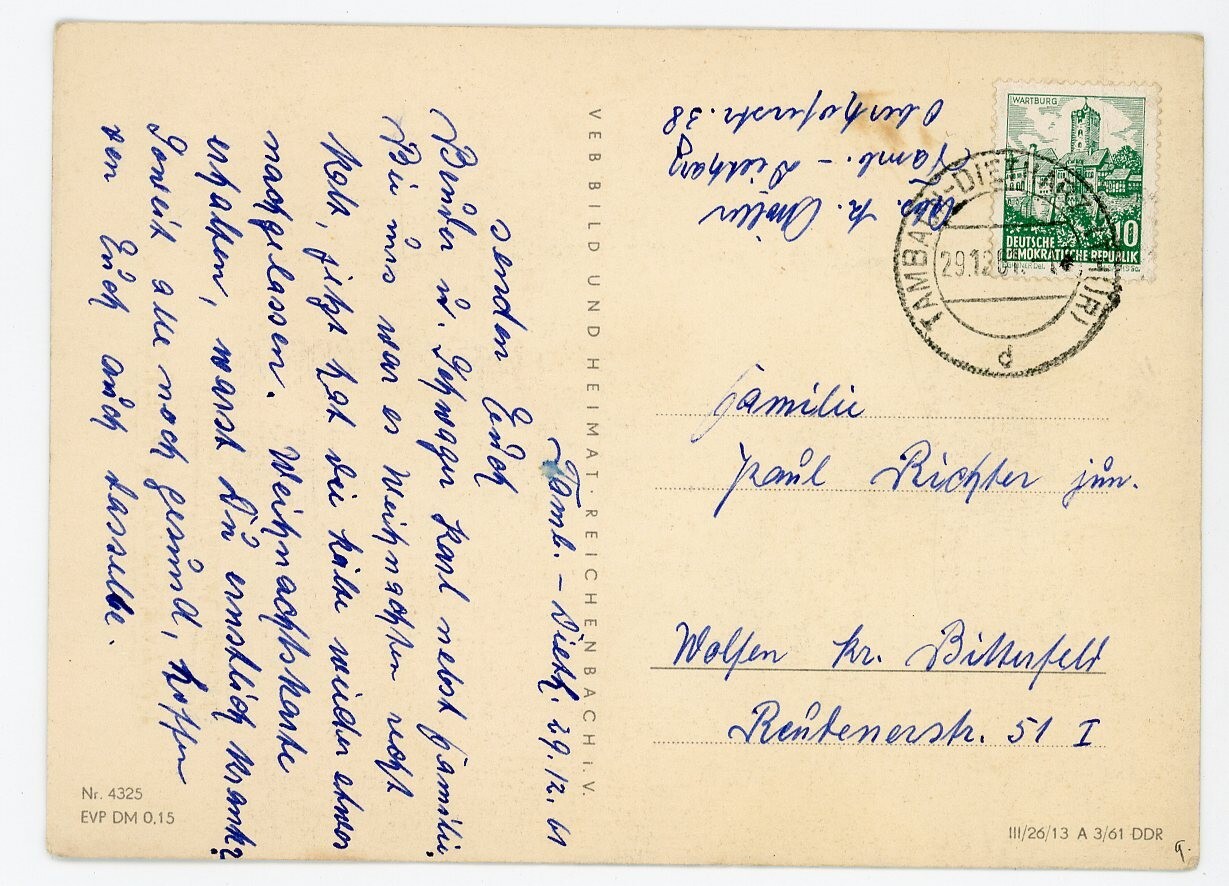 Tamb. - Dieth. 29.12.61
senden Euch
Bruder u. Schwager Karl nebst Familie.
Bei uns war es Weihnachten recht
kalt, jetzt hat die kälte wieder etwas
nachgelassen. Weihnachtskarte
erhalten, warst Du ernstlich krank?
Soweit alle noch gesund, hoffen
von Euch auch dasselbe.
VEB BILD UND HEIMAT · REICHENBACH i. V.
Nr. 4325
EVP DM 0,15
Abs. K.
Tamb. - Dietharz
Oberhoferstr. 38
WARTBURG
10
DEUTSCHE
DEMOKRATISCHE REPUBLIK
TAMBACH-DIETHARZ (THÜR)
29.12.61
d
Familie
Paul Richter jun.
Wolfen kr. Bitterfeld
Reudenerstr. 51 I
III/26/13 A 3/61 DDR